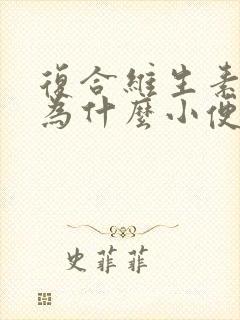 復合維生素
為什麼小便
史菲菲